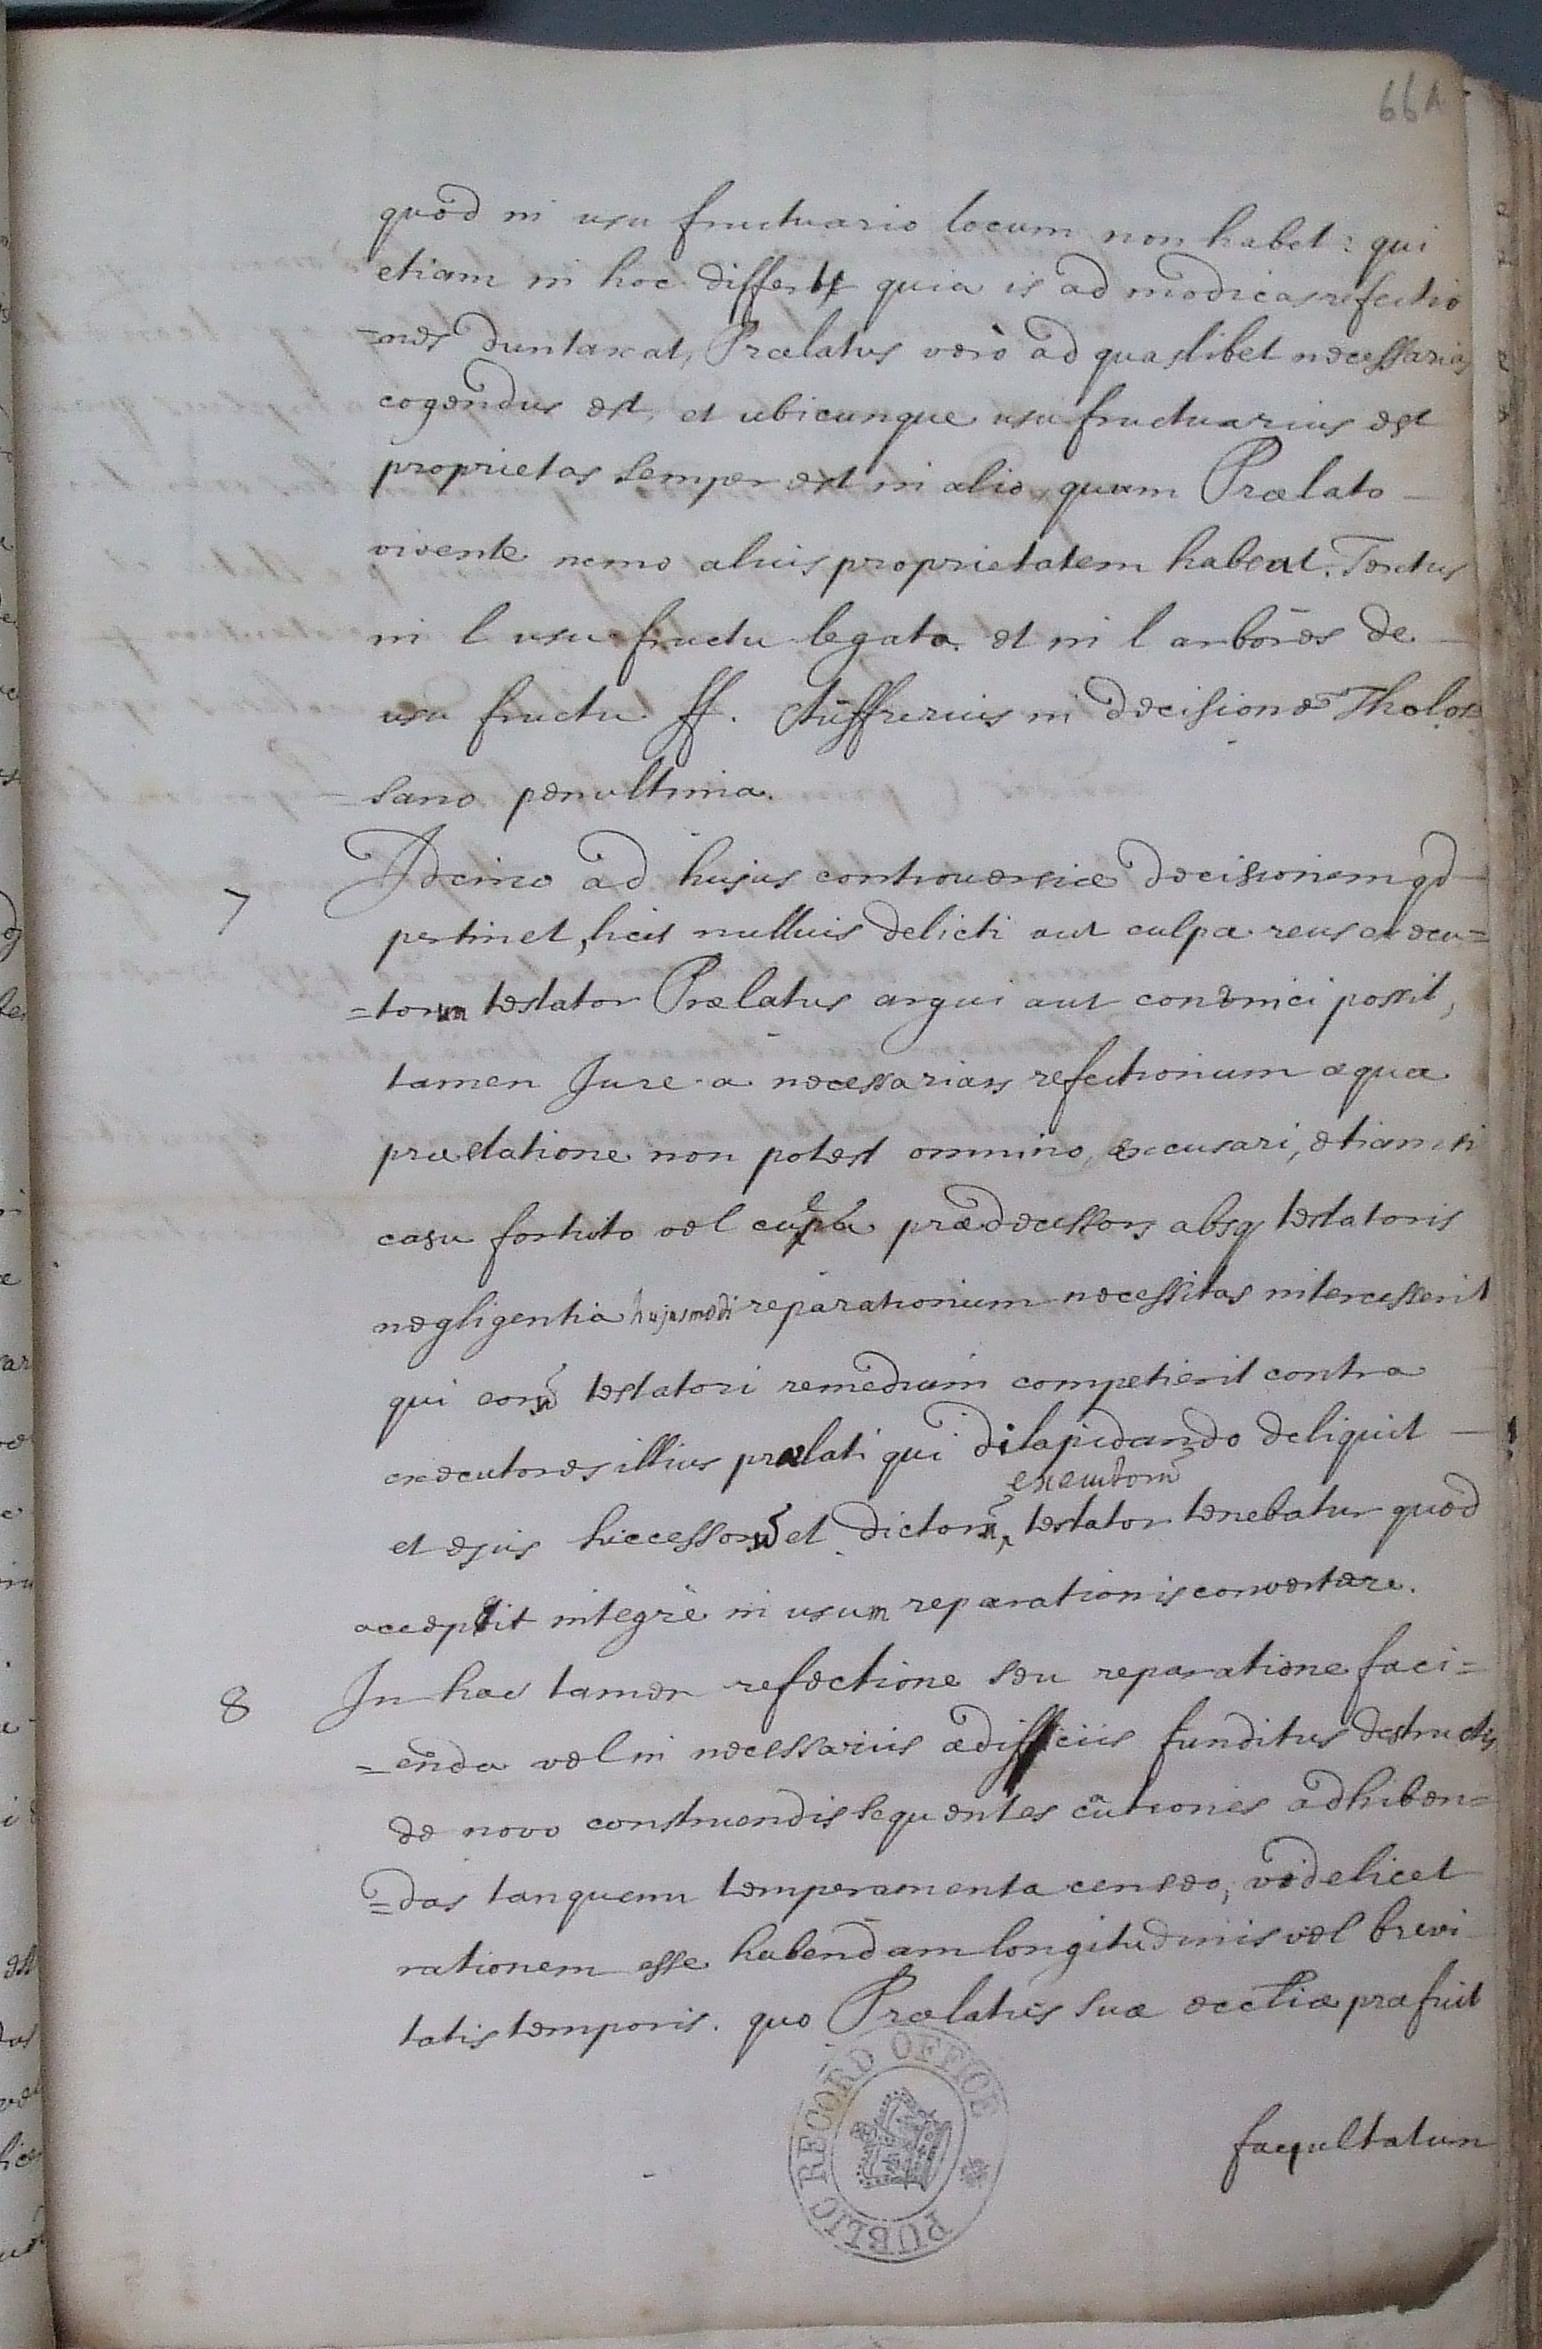 66A
quod in usu fructuario locum non habet: qui
etiam in hoc differt quia is ad modicas refectio
=nes duntaxat, Prælatus verò ad quaslibet necessarias
cogendus est, et ubicunque usufructuarius est
proprietas semper est in alio, quam Prælato
vivente nemo alius proprietatem habeat. Textus
in l usu fructu legato. et in l arbores de
usu fructu ff. Auffrerius in decisione Tholos=
=sano penultima.
7 Decimo ad hujus controversiæ decisionem qd
pertinet, licet nullius delicti aut culpæ reus execu=
=torum testator Prælatus argui aut convinci possit,
tamen Jure a necessarias refectionum æqua
præstatione non potest omnino, excusari, etiamsi
casu fortuito vel culpa prædecessoris absq testatoris
negligentia hujusmodi reparationum necessitas intercesserit
qui eorũ testatori remedium competierit contra
executores illius prælati qui dilapidando deliquit
executorũ
et ejus successorũ et dictorũ, testator tenebatur quod
accepit integrè in usum reparationis convertere.
8 In hac tamen refectione seu reparatione faci=
=enda vel in necessariis ædificiis funditus destructis
de novo construendis sequentes cautiones adhiben=
=das tanquam temperamenta censeo, videlicet
rationem esse habendam longitudinis vel brevi
tatis temporis. quo Prælatus suæ eccliæ præfuit
facultatum
PUBLIC RECORD OFFICE